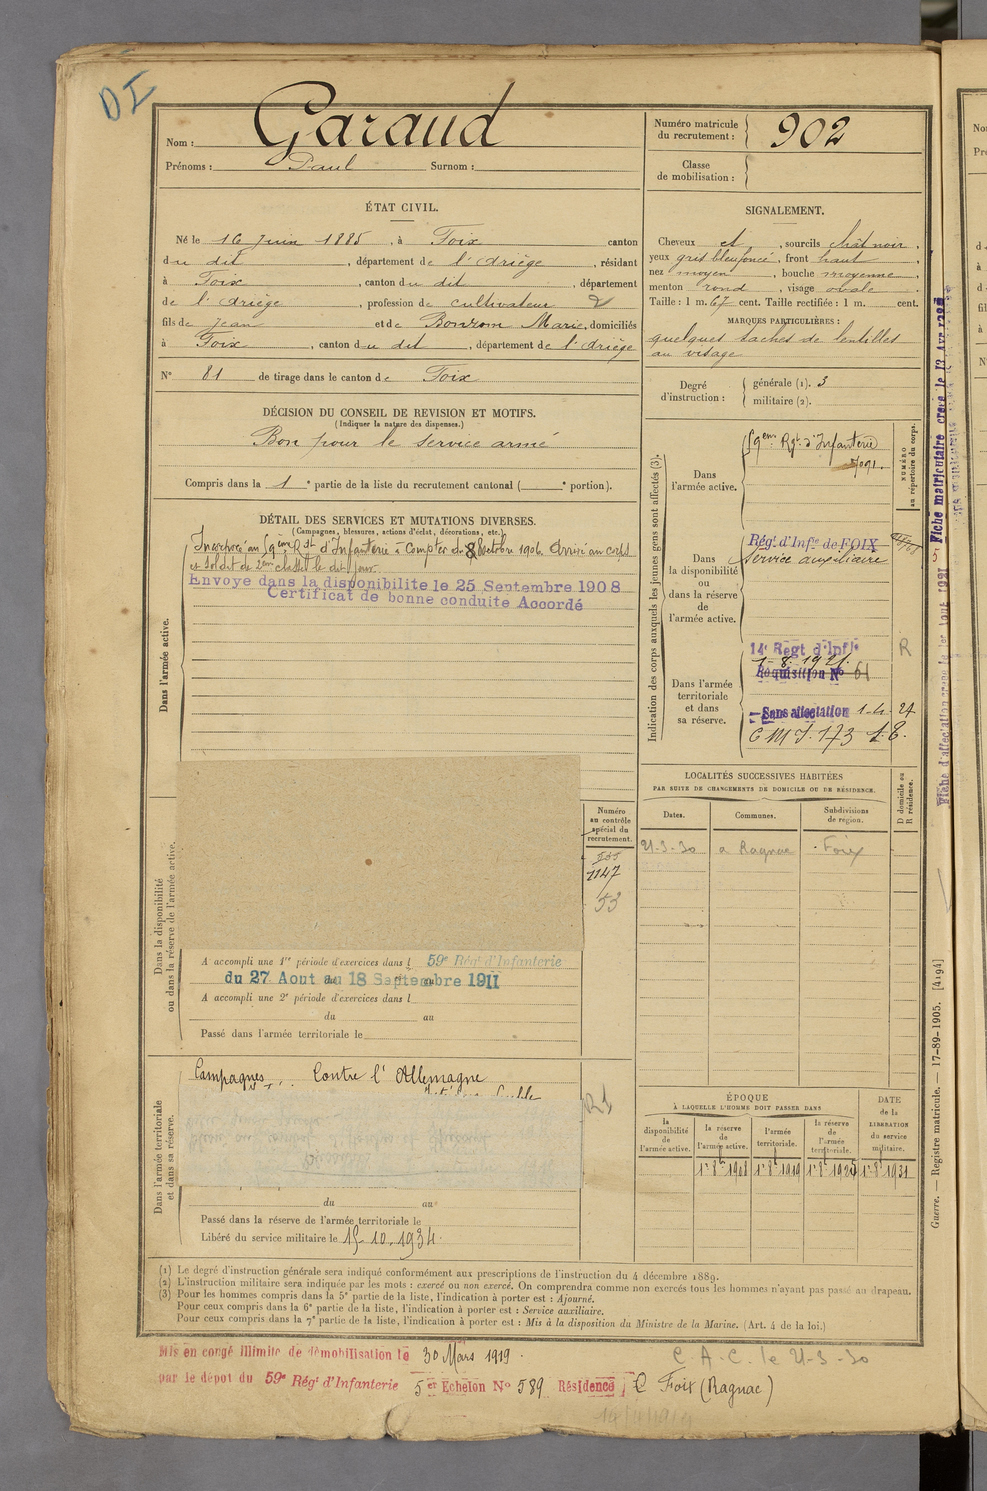 DI
Nom : Garaud
Prénoms : Paul Surnom :
Numéro matricule du recrutement : 902
Classe de mobilisation :
ÉTAT CIVIL.
Né le 16 Juin 1885, à Foix canton
du dit, département de l'Ariège, résidant
à Foix, canton du dit, département
de l'Ariège, profession de cultivateur
fils de Jean et de Bonrom Marie, domiciliés
à Foix, canton du dit, département de l'Ariège
N° 81 de tirage dans le canton de Foix
SIGNALEMENT.
Cheveux et, sourcils chât noir,
yeux gris bleu foncé, front haut,
nez moyen, bouche moyenne,
menton rond, visage ovale.
Taille : 1 m. 67 cent. Taille rectifiée : 1 m. cent.
MARQUES PARTICULIÈRES :
quelques taches de lentilles
au visage
Degré d'instruction : générale (1). 3
militaire (2).
DÉCISION DU CONSEIL DE REVISION ET MOTIFS.
(Indiquer la nature des dispenses.)
Bon pour le service armé
Compris dans la 1e partie de la liste du recrutement cantonal ( e portion).
DÉTAIL DES SERVICES ET MUTATIONS DIVERSES.
(Campagnes, blessures, actions d'éclat, décorations, etc.)
Incorporé au 59ème Rgt d'Infanterie à compter du 8 Octobre 1906. Arrivé au corps
et soldat de 2ème classe le dit jour.
Envoye dans la disponibilite le 25 Septembre 1908
Certificat de bonne conduite Accordé
Dans l'armée active.
Indication des corps auxquels les jeunes gens sont affectés (3).
NUMÉRO au répertoire du corps.
Dans l'armée active.
59em Rgt d'Infanterie
Dans la disponibilité ou dans la réserve de l'armée active.
Rég.t d'Inf.ie de FOIX
Service auxiliaire
Dans l'armée territoriale et dans sa réserve.
14e Regt d'Inf.ie
1-8-1921.
Réquisition N° 61
R
Sans affectation 1-4-27
Fiche matriculaire
LOCALITÉS SUCCESSIVES HABITÉES
PAR SUITE DE CHANGEMENTS DE DOMICILE OU DE RÉSIDENCE.
D domicile ou R résidence.
Dates. Communes. Subdivisions de région.
21-3-30 a Ragnac Foix
Dans la disponibilité ou dans la réserve de l'armée active.
Numéro au contrôle spécial du recrutement.
1147
53
A accompli une 1re période d'exercices dans l 59e Rég.t d'Infanterie
du 27 Aout au 18 Septembre 1911
A accompli une 2e période d'exercices dans l
du au
Passé dans l'armée territoriale le
Dans l'armée territoriale et dans sa réserve.
Campagnes. Contre l'Allemagne
du au
Passé dans la réserve de l'armée territoriale le
Libéré du service militaire le 15-10-1934.
ÉPOQUE
À LAQUELLE L'HOMME DOIT PASSER DANS
DATE de la LIBÉRATION du service militaire.
la disponibilité de l'armée active. la réserve de l'armée active. l'armée territoriale. la réserve de l'armée territoriale.
Guerre. — Registre matricule. — 17-89-1905. [4194]
(1) Le degré d'instruction générale sera indiqué conformément aux prescriptions de l'instruction du 4 décembre 1889.
(2) L'instruction militaire sera indiquée par les mots : exercé ou non exercé. On comprendra comme non exercés tous les hommes n'ayant pas passé au drapeau.
(3) Pour les hommes compris dans la 5e partie de la liste, l'indication à porter est : Ajourné.
Pour ceux compris dans la 6e partie de la liste, l'indication à porter est : Service auxiliaire.
Pour ceux compris dans la 7e partie de la liste, l'indication à porter est : Mis à la disposition du Ministre de la Marine. (Art. 4 de la loi.)
Mis en congé illimité de démobilisation le 30 Mars 1919.
par le dépot du 59e Rég.t d'Infanterie 5er Echelon N° 589 Résidence Foix (Ragnac)
C.A.C. le 21-3-30